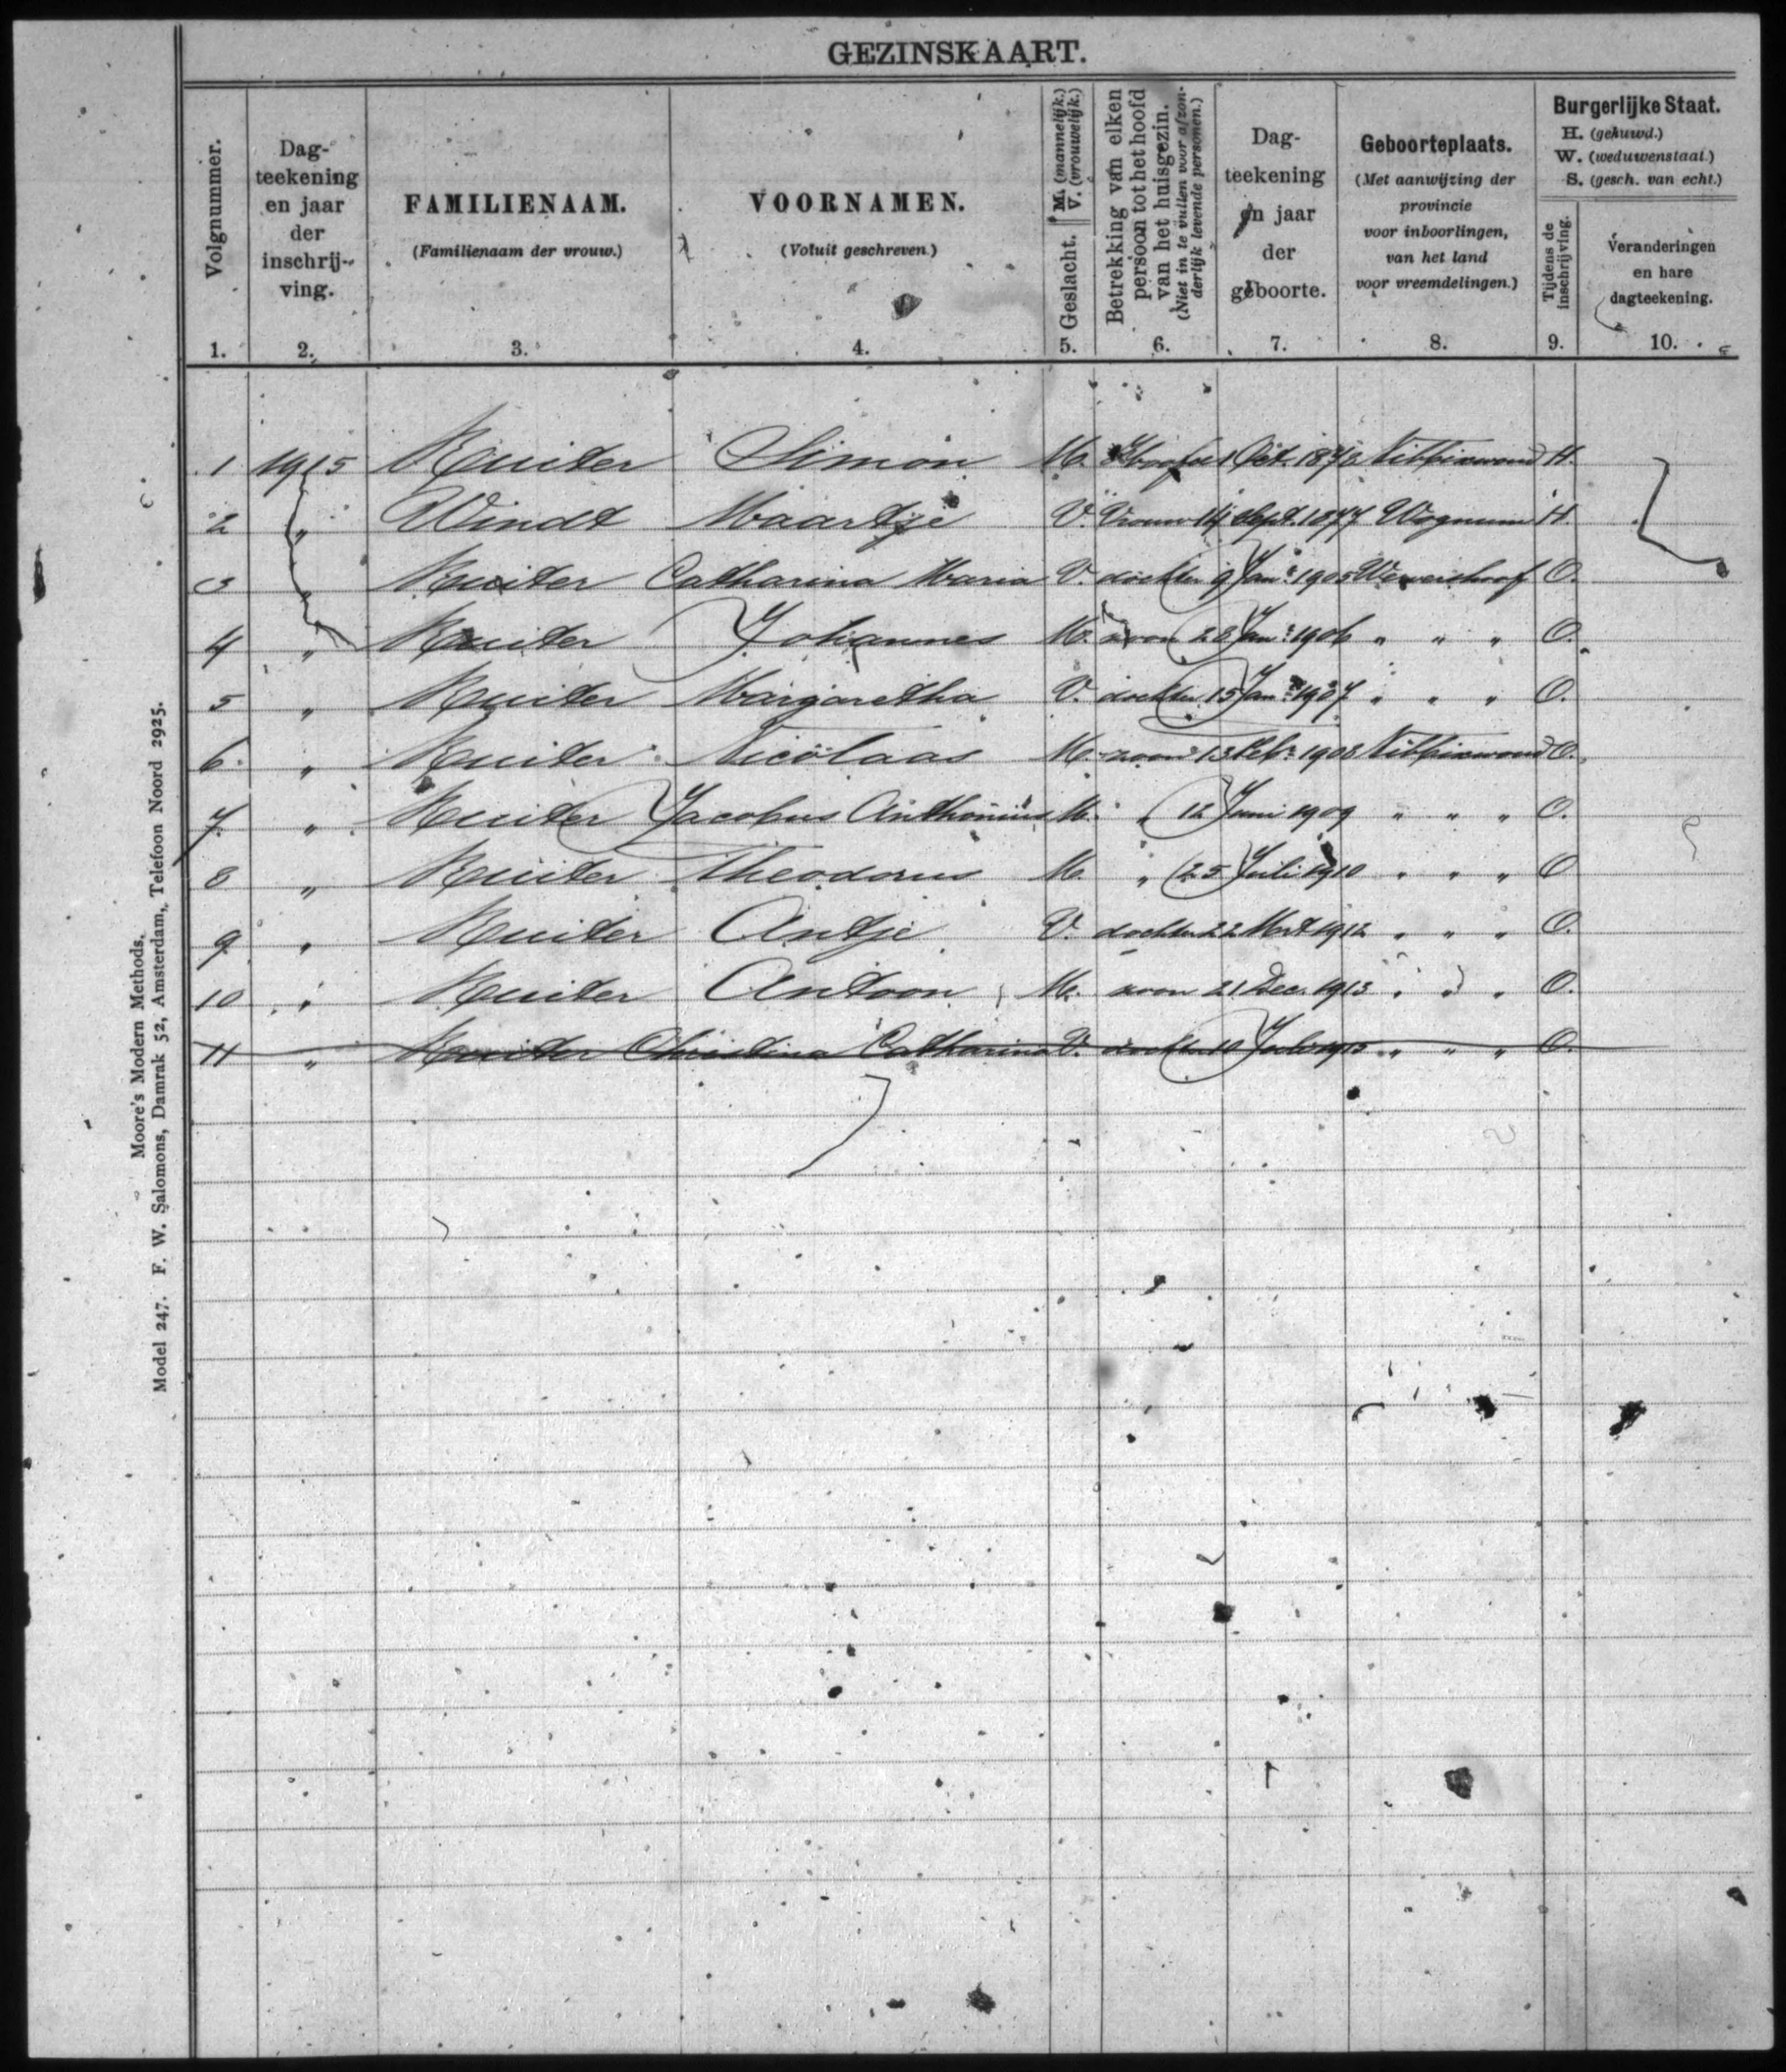 GEZINSKAART.
Volgnummer.
1.
Dag-
teekening
en jaar
der
inschrij-
ving.
2.
FAMILIENAAM.
(Familienaam der vrouw.)
3.
VOORNAMEN.
(Voluit geschreven.)
4.
Geslacht. M. (mannelijk.)
V. (vrouwelijk.)
5.
Betrekking van elken
persoon tot het hoofd
van het huisgezin.
(Niet in te vullen voor afzon-
derlijk levende personen.)
6.
Dag-
teekening
en jaar
der
geboorte.
7.
Geboorteplaats.
(Met aanwijzing der
provincie
voor inboorlingen,
van het land
voor vreemdelingen.)
8.
Burgerlijke Staat.
H. (gehuwd.)
W. (weduwenstaat.)
S. (gesch. van echt.)
Tijdens de
inschrijving.
9.
Veranderingen
en hare
dagteekening.
10.
1 1915 Ruiter Simon M. Hoofd 1 Oct. Nibbixwoud H.
2 " Windt Maartje V. Vrouw 14 Sept. 1877 Wognum H.
3 " Ruiter Catharina Maria V. dochter 9 Jan: 1905 Wervershoof O.
4 " Ruiter Johannes M. zoon 28 Jan: 1906 " " " O.
5 " Ruiter Margaretha V. dochter 15 Jan: 1907 " " " O.
6. " Ruiter Nicolaas M. zoon 13 Feb: 1908 Nibbixwoud O.
7. " Ruiter Jacobus Anthonius M. " 12 Juni 1909 " " " O.
8 " Ruiter Theodorus M. " 25 Juli 1910 " " " O
9 " Ruiter Antje V. dochter 22 Mrt 1912 " " " O.
10 " Ruiter Antoon M. zoon 21 Dec. 1913 " " " O.
11 " Ruiter Christina Catharina V. dochter 10 Juli 1915 " " " O.
Moore's Modern Methods.
Model 247. F. W. Salomons, Damrak 52, Amsterdam, Telefoon Noord 2925.